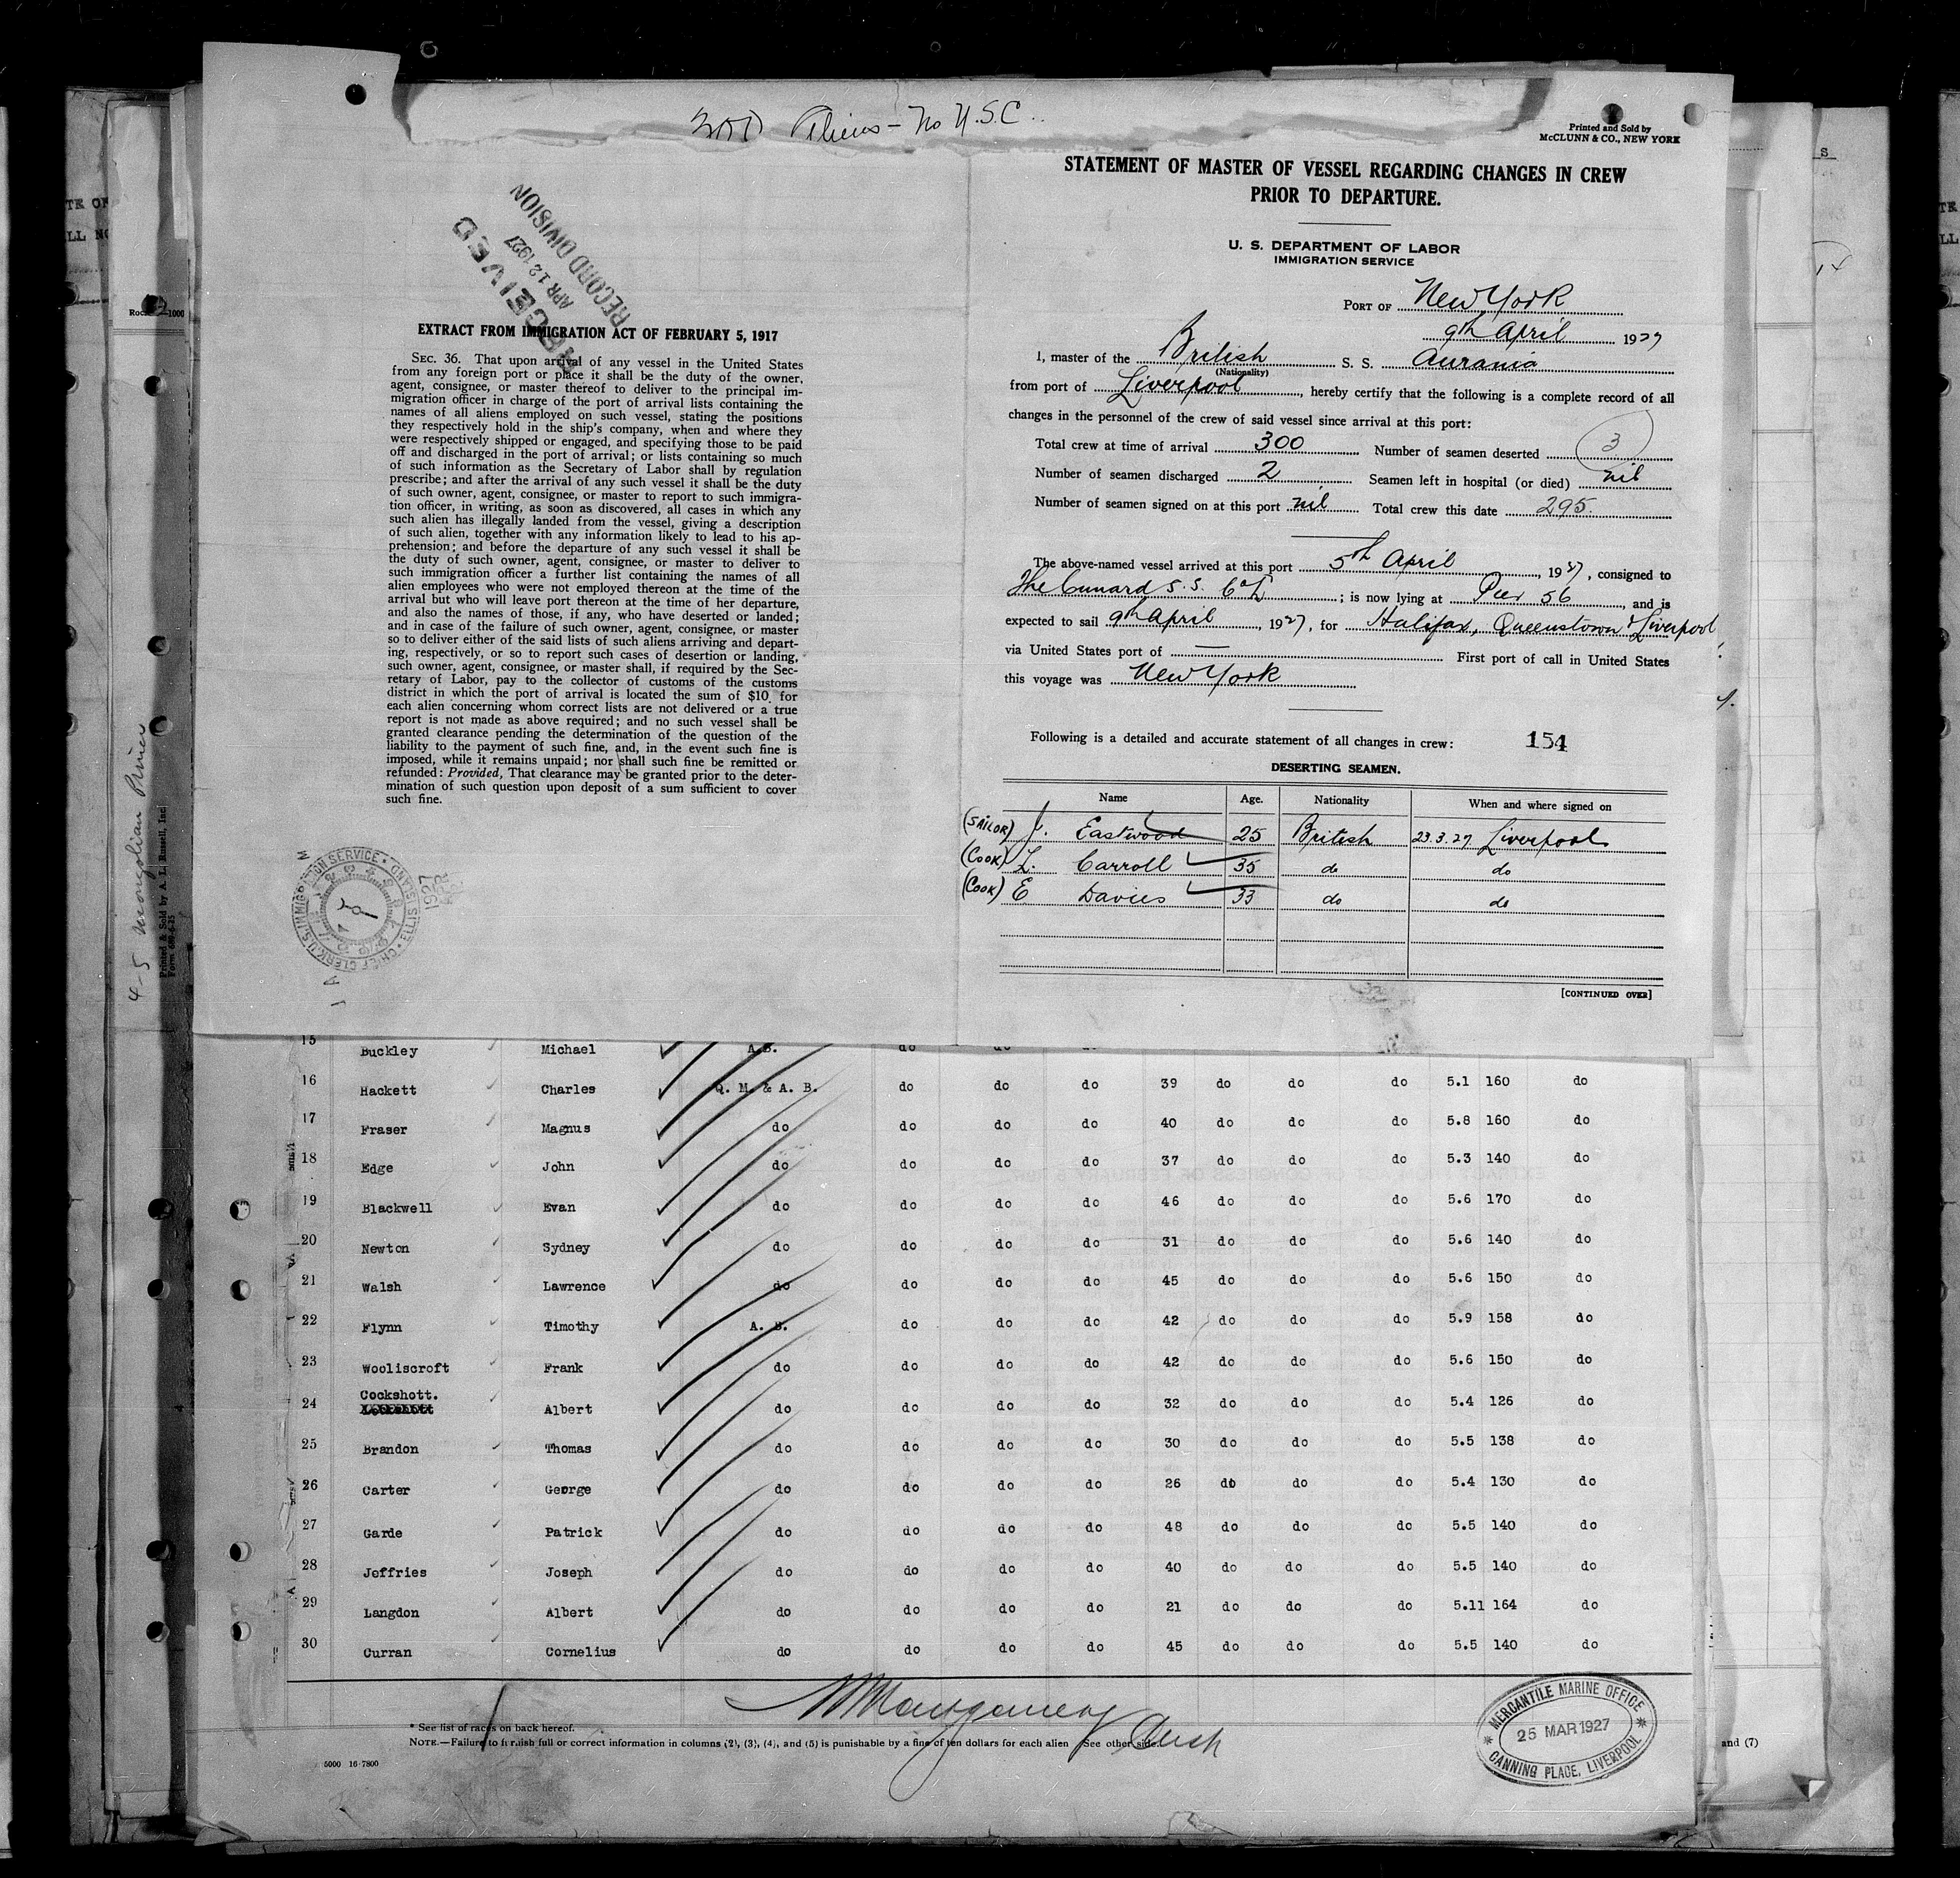 300 Aliens - No U.S.C.
Printed and Sold by
McCLUNN & CO., NEW YORK
RECEIVED
APR 12 1927
RECORD DIVISION
EXTRACT FROM IMMIGRATION ACT OF FEBRUARY 5, 1917
SEC. 36. That upon arrival of any vessel in the United States
from any foreign port or place it shall be the duty of the owner,
agent, consignee, or master thereof to deliver to the principal im-
migration officer in charge of the port of arrival lists containing the
names of all aliens employed on such vessel, stating the positions
they respectively hold in the ship's company, when and where they
were respectively shipped or engaged, and specifying those to be paid
off and discharged in the port of arrival; or lists containing so much
of such information as the Secretary of Labor shall by regulation
prescribe; and after the arrival of any such vessel it shall be the duty
of such owner, agent, consignee, or master to report to such immigra-
tion officer, in writing, as soon as discovered, all cases in which any
such alien has illegally landed from the vessel, giving a description
of such alien, together with any information likely to lead to his ap-
prehension; and before the departure of any such vessel it shall be
the duty of such owner, agent, consignee, or master to deliver to
such immigration officer a further list containing the names of all
alien employees who were not employed thereon at the time of the
arrival but who will leave port thereon at the time of her departure,
and also the names of those, if any, who have deserted or landed;
and in case of the failure of such owner, agent, consignee, or master
so to deliver either of the said lists of such aliens arriving and depart-
ing, respectively, or so to report such cases of desertion or landing,
such owner, agent, consignee, or master shall, if required by the Sec-
retary of Labor, pay to the collector of customs of the customs
district in which the port of arrival is located the sum of $10 for
each alien concerning whom correct lists are not delivered or a true
report is not made as above required; and no such vessel shall be
granted clearance pending the determination of the question of the
liability to the payment of such fine, and, in the event such fine is
imposed, while it remains unpaid; nor shall such fine be remitted or
refunded: Provided, That clearance may be granted prior to the deter-
mination of such question upon deposit of a sum sufficient to cover
such fine.
STATEMENT OF MASTER OF VESSEL REGARDING CHANGES IN CREW
PRIOR TO DEPARTURE.
U. S. DEPARTMENT OF LABOR
IMMIGRATION SERVICE
PORT OF New York
9th April 1927
I, master of the British S. S. Aurania
(Nationality)
from port of Liverpool, hereby certify that the following is a complete record of all
changes in the personnel of the crew of said vessel since arrival at this port:
Total crew at time of arrival 300 Number of seamen deserted 3
Number of seamen discharged 2 Seamen left in hospital (or died) nil
Number of seamen signed on at this port nil Total crew this date 295.
The above-named vessel arrived at this port 5th April, 1927, consigned to
The Cunard S.S. Co L; is now lying at Pier 56, and is
expected to sail 9th April, 1927, for Halifax, Queenstown & Liverpool
via United States port of — First port of call in United States
this voyage was New York
Following is a detailed and accurate statement of all changes in crew: 154
DESERTING SEAMEN.
Name Age. Nationality When and where signed on
(SAILOR) J. Eastwood 25 British 23.3.27 Liverpool
(COOK) L. Carroll 35 do do
(COOK) E Davies 33 do do
[CONTINUED OVER]
4-5 Mongolian Prince
Printed & Sold by A. L. Russell, Inc
U.S. IMMIGRATION SERVICE • ELLIS ISLAND • CHIEF CLERK
1927
15 Buckley Michael A.B. do do
16 Hackett Charles Q. M. & A. B. do do do 39 do do do 5.1 160 do
17 Fraser Magnus do do do do 40 do do do 5.8 160 do
18 Edge John do do do do 37 do do do 5.3 140 do
19 Blackwell Evan do do do do 46 do do do 5.6 170 do
20 Newton Sydney do do do do 31 do do do 5.6 140 do
21 Walsh Lawrence do do do do 45 do do do 5.6 150 do
22 Flynn Timothy A. B. do do do 42 do do do 5.9 158 do
23 Wooliscroft Frank do do do do 42 do do do 5.6 150 do
Cockshott.
24 Albert do do do do 32 do do do 5.4 126 do
25 Brandon Thomas do do do do 30 do do do 5.5 138 do
26 Carter George do do do do 26 do do do 5.4 130 do
27 Garde Patrick do do do do 48 do do do 5.5 140 do
28 Jeffries Joseph do do do do 40 do do do 5.5 140 do
29 Langdon Albert do do do do 21 do do do 5.11 164 do
30 Curran Cornelius do do do do 45 do do do 5.5 140 do
* See list of races on back hereof.
NOTE.—Failure to furnish full or correct information in columns (2), (3), (4), and (5) is punishable by a fine of ten dollars for each alien See other side.
5000 16-7800
MERCANTILE MARINE OFFICE
25 MAR 1927
CANNING PLACE, LIVERPOOL
and (7)